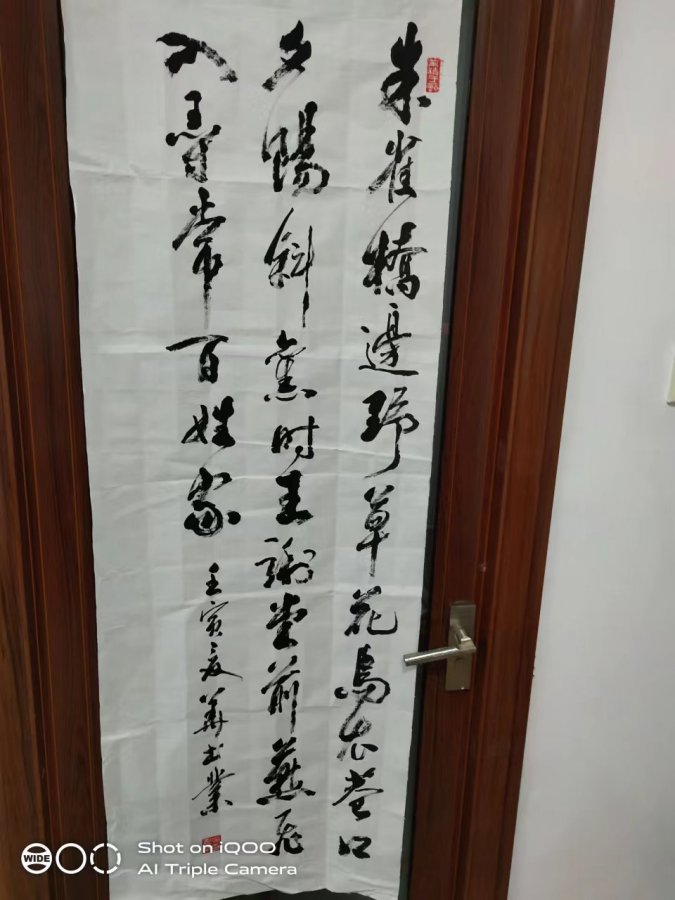 朱雀橋邊野草花烏衣巷口
夕陽斜舊时王謝堂前燕飛
入尋常百姓家
壬寅夏華书業
WIDE
Shot on iQOO
AI Triple Camera